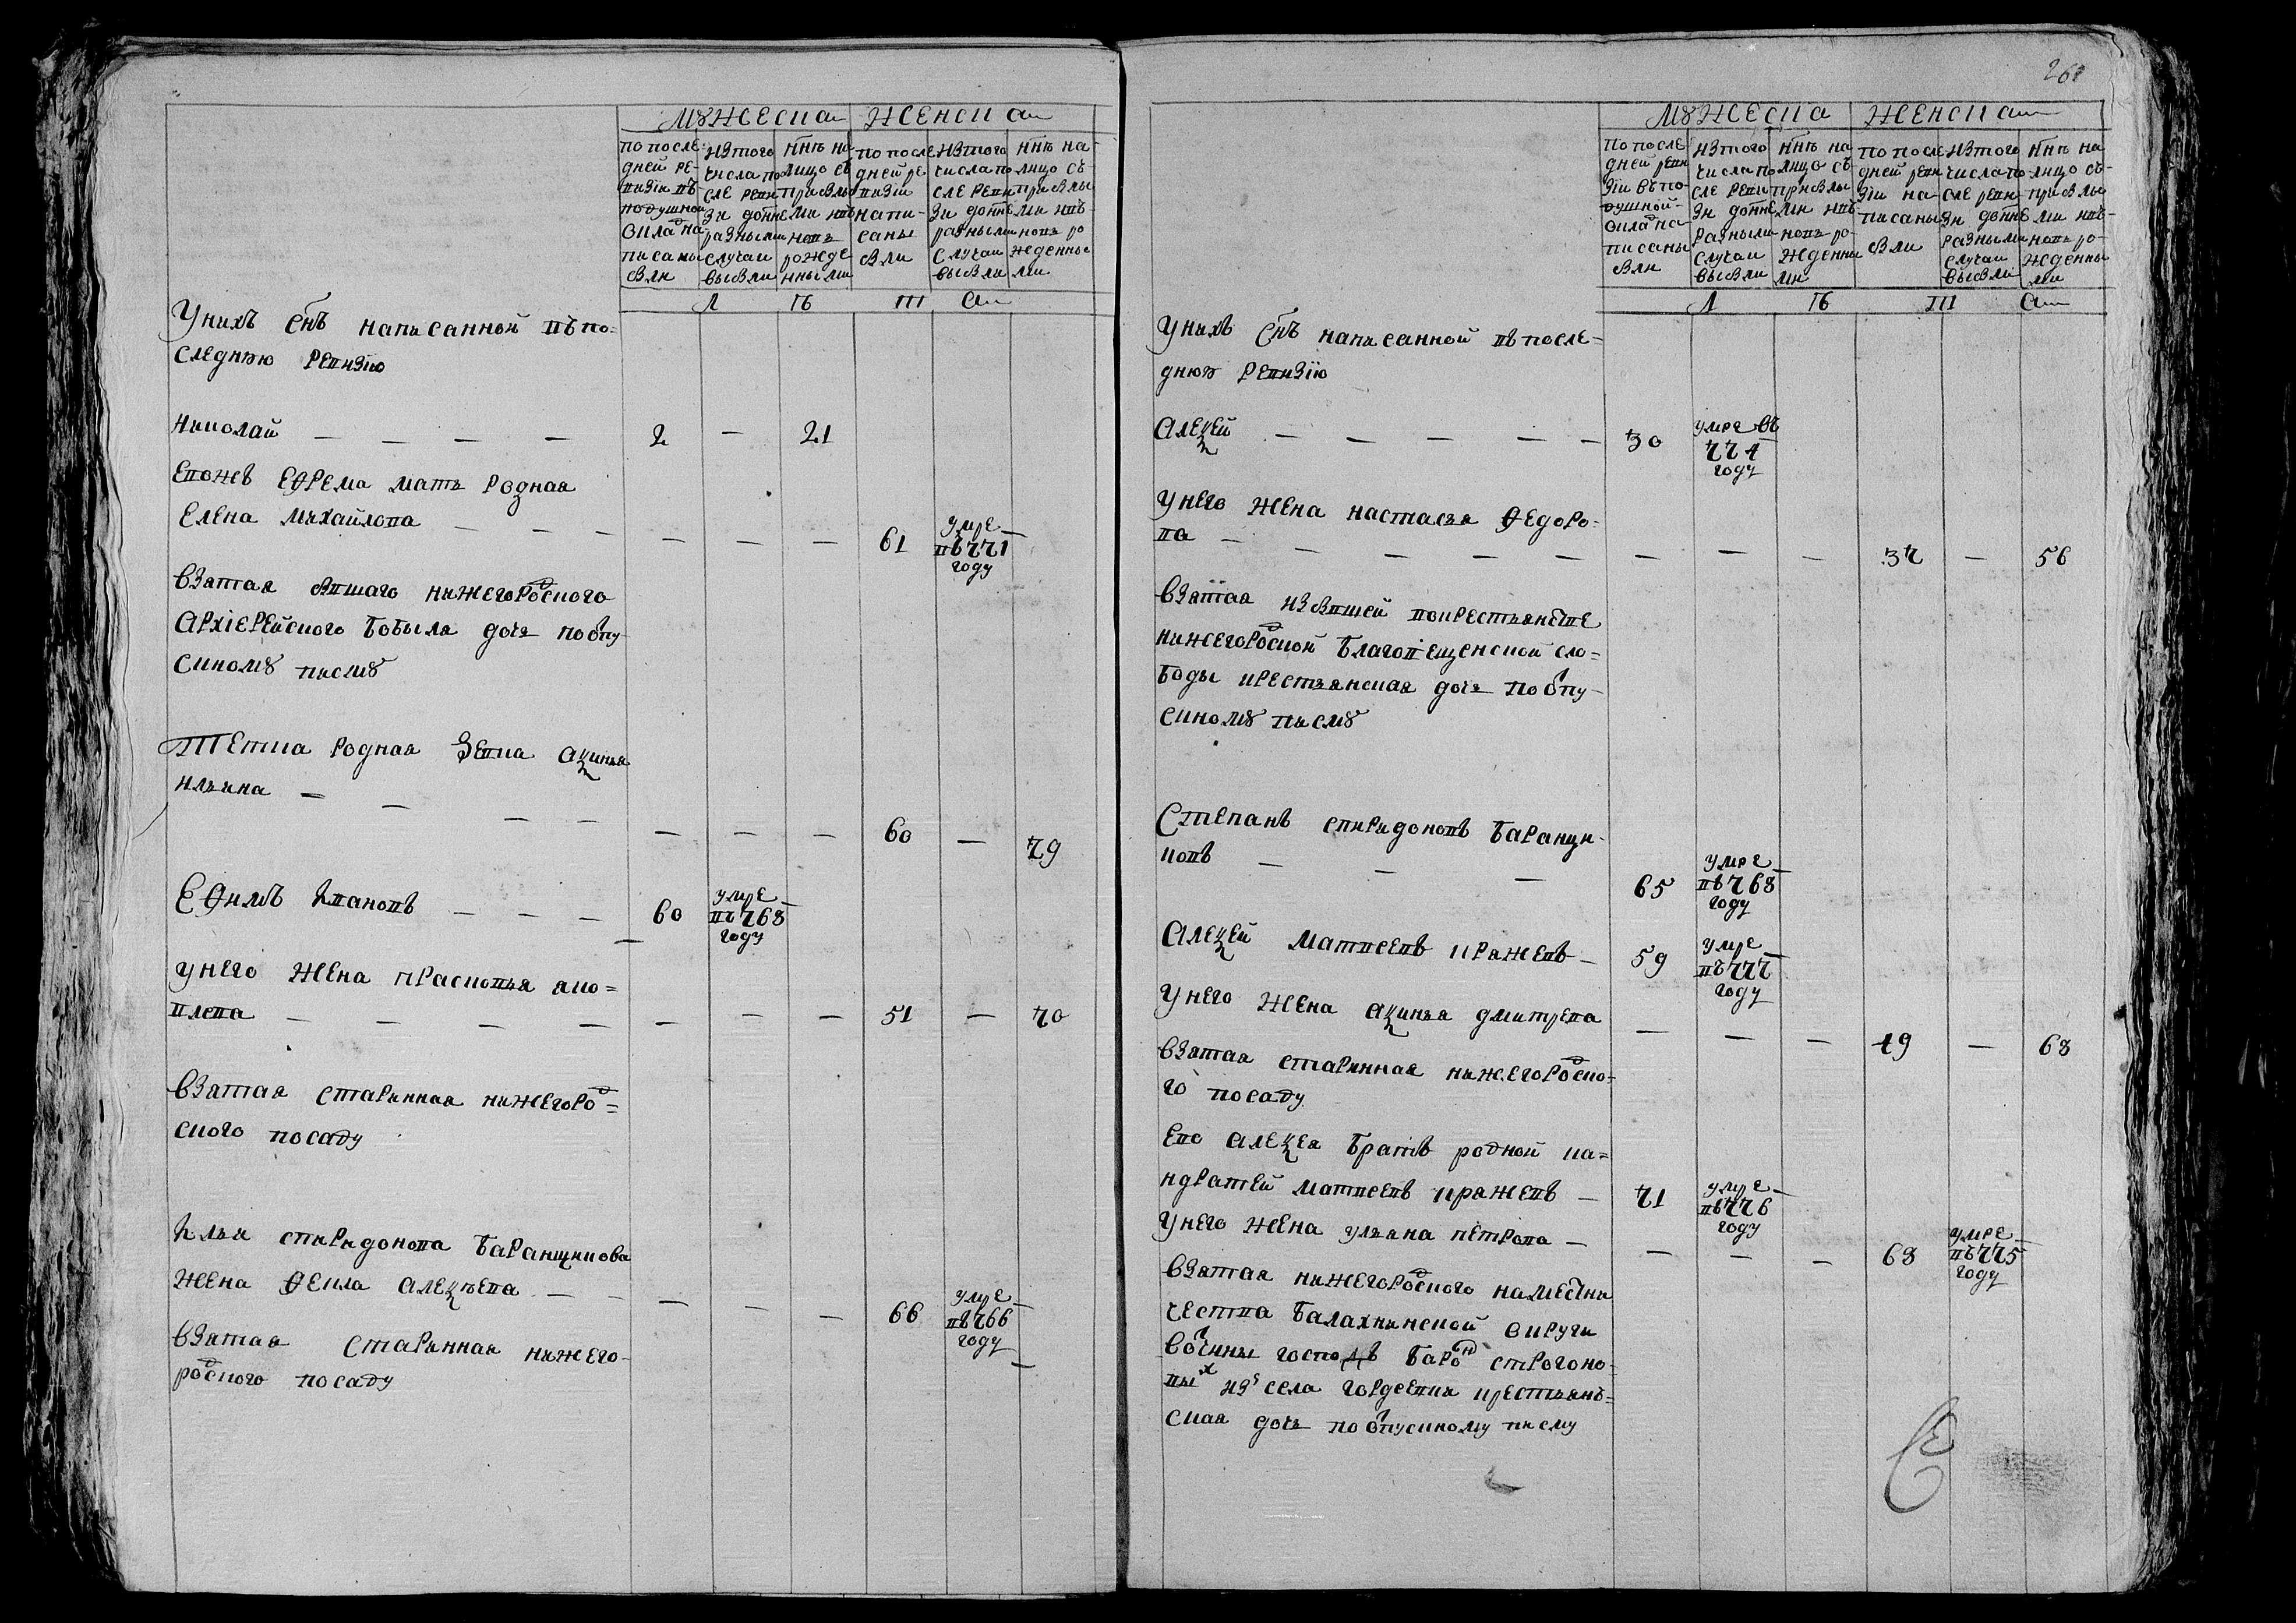 Мꙋжеска Женска
по после- дней ре- визiи въ подушной окладъ на- писаны были
изтого числа по- сле реви- зи до нне разными случаи выбыли
ннѣ на лицо съ прибылы- ми и въ- новь рожде- нными
по после- дней ре- визiи напи- саны были
изтого числа по- сле реви- зи до нне разными случаи выбыли
ннѣ на- лицо съ- прибылы- ми и въ- новь ро- жденны- ми
Л ѣ т а
Унихъ снъ написанной въ по-
следнюю ревизiю
Николай — — — — 2 — 21
Евожъ Ефрема мать родная
Елена Михайлова — — — — — — 61 умре въ 771 году —
взятая бывшаго нижегородского
архiерейского бобыля дочь по отпу-
скномꙋ писмꙋ
Тетка родная девка Аксинья
Ильина — — — — — — — 60 — 79
Ефимъ Ивановъ — — — 60 умре въ 768 году —
унего жена Прасковья Яко-
влева — — — — — — — 51 — 70
взятая старинная нижегоро-
дского посаду
Ильи Спиридонова Баранщикова
жена Фекла Алексѣева — — — — — 66 умре въ 766 году —
взятая старинная нижего-
родского посаду
261
Мꙋжеска Женска
по после дней реви зiи въ по- душной- окладъ на- писаны были
изтого числа по- сле реви зи до нне разными случаи выбыли
ннѣ на лицо съ- прибылы ми и въ- новь ро- жденны ми
по после дней реви зiи на- писаны были
изтого числа по- сле реви- зи до нне разными случаи выбыли
ннѣ на лицо съ- прибылы ми и въ- новь ро- жденны ми
Л ѣ т а
Унихъ снъ написанной въ после-
днюю ревизiю
Алексей — — — — — 30 умре въ 774 году —
Унего жена Настасья Федоро-
ва — — — — — — — — 37 — 56
взятая избывшей вокрестьянстве
нижегородской благовещенской сло-
боды крестьянская дочь по отпу-
скномꙋ писмꙋ
Степанъ Спиридоновъ Баранщи-
ковъ — — — 65 умре въ 768 году —
Алексей Матвеевъ Кряжевъ — 59 умре въ 777 году —
Унего жена Аксинья Дмитрева — — — 49 — 68
взятая старинная нижегородско-
го посаду
Ево Алексея братъ родной Ка-
ндратей Матвеевъ Кряжевъ — 71 умре въ 776 году —
Унего жена Ульяна Петрова — — — — 68 умре въ 775 году —
взятая нижегородского наместни
чества балахнинской округи
вотчины господъ барон Строгоно-
вых изъ села Гордеевки крестьянъ-
ская дочь по отпускному писму